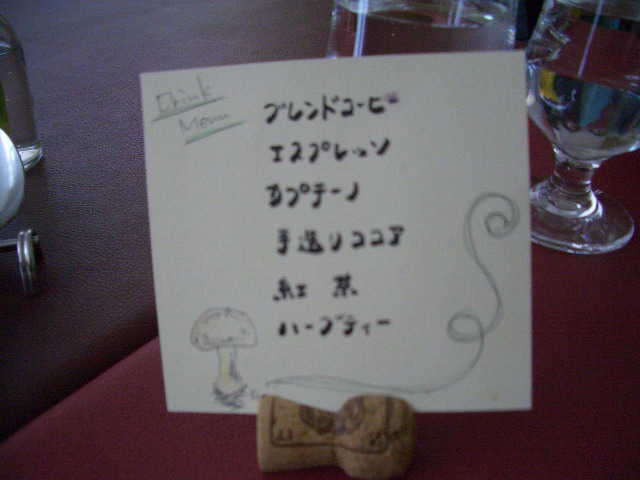 Drink
Menu
ブレンドコーヒー
エスプレッソ
カプチーノ
手造りココア
紅茶
ハーブティー